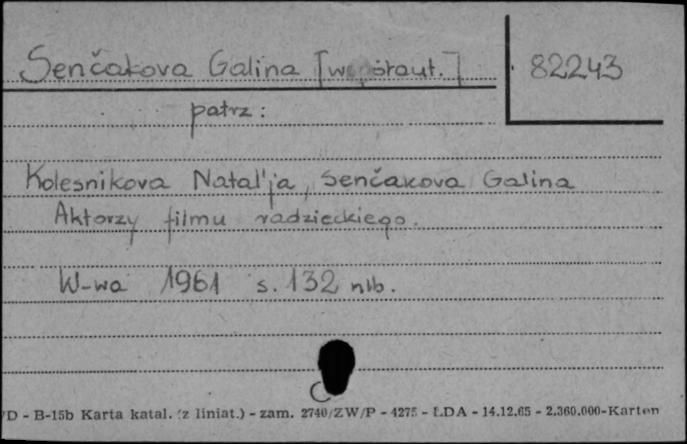 Senčakova Galina [współaut.]
82243
patrz:
Kolesnikova Natal'ja, Senčakova Galina
Aktorzy filmu radzieckiego.
W-wa 1961 s. 132 nlb.
/D - B-15b Karta katal. (z liniat.) - zam. 2740/ZW/P - 4275 - ŁDA - 14.12.65 - 2.360.000-Karton